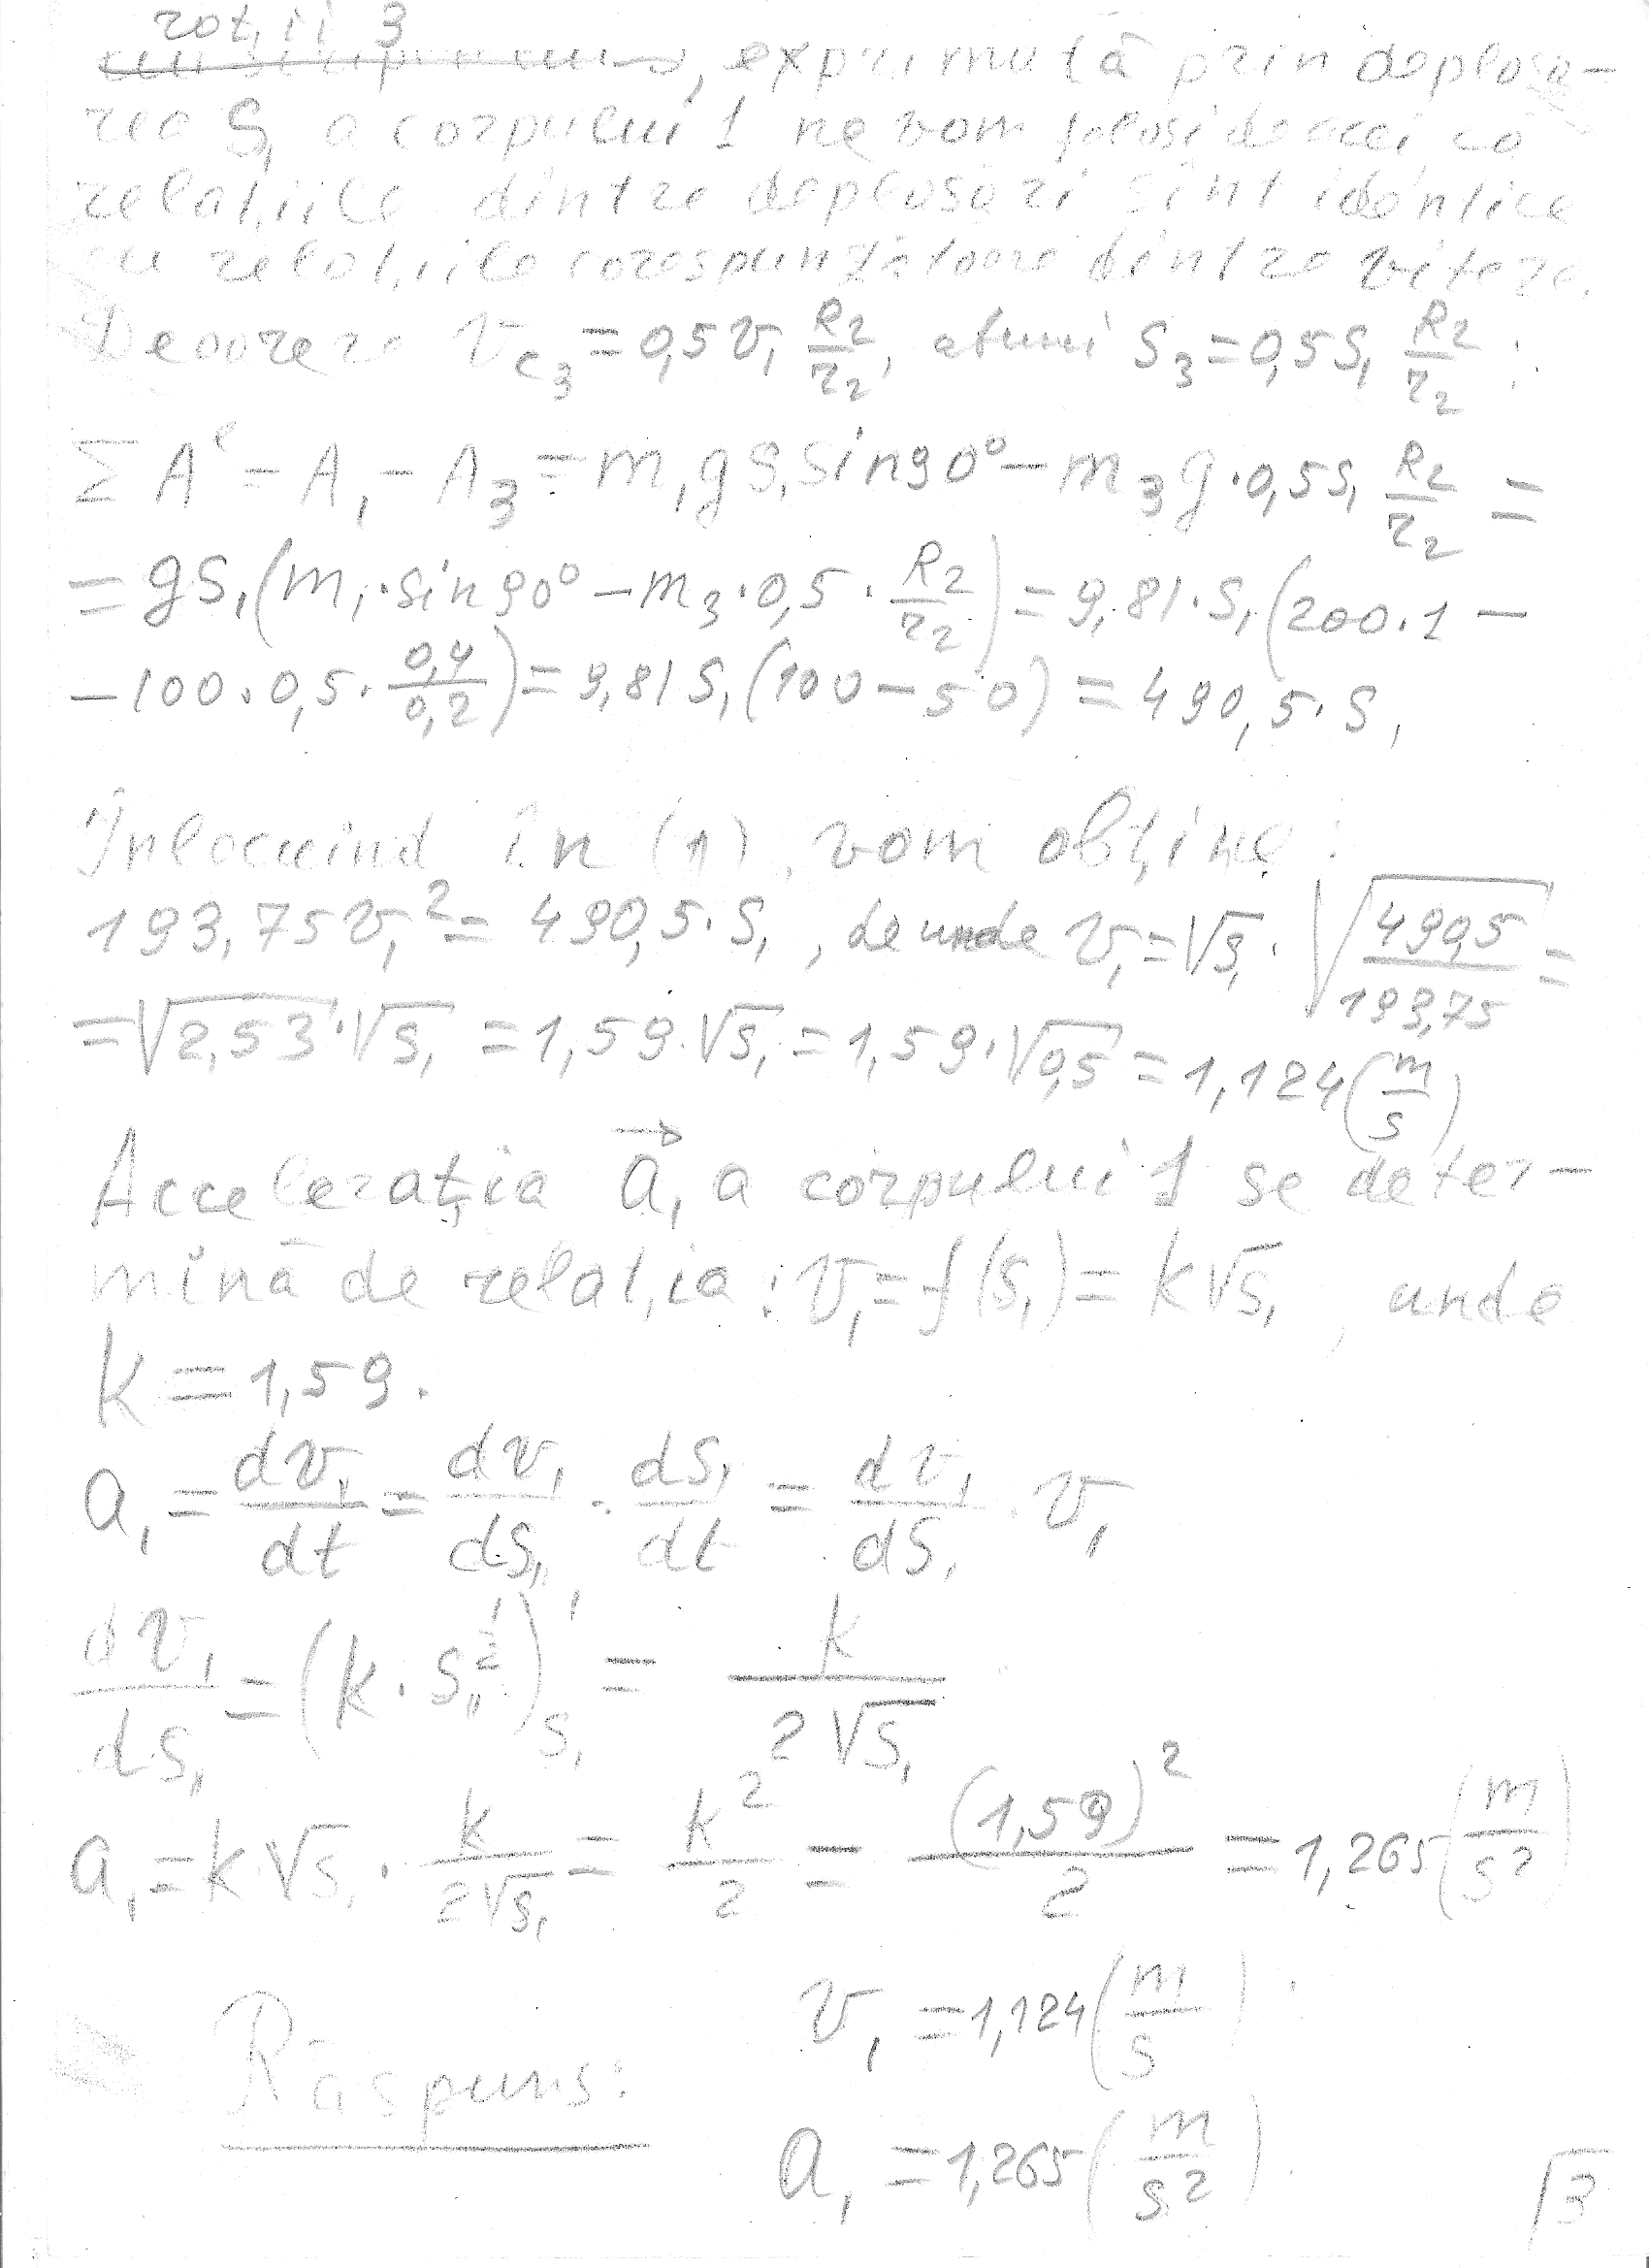 roții 3
, exprimată prin deplasa-
rea S₁ a corpului 1 ne vom folosi de aceea, că
relațiile dintre deplasări sînt identice
cu relațiile corespunzătoare dintre viteze.
Deoarece v_{c3} = 0,5 v₁ R₂/r₂, atunci S₃ = 0,5 S₁ R₂/r₂ :
ΣA^e = A₁ - A₃ = m₁gS₁ sin90° - m₃g·0,5S₁ R₂/r₂ =
= gS₁(m₁·sin90° - m₃·0,5·R₂/r₂) = 9,81·S₁(200·1 -
- 100·0,5·0,4/0,2) = 9,81S₁(100 - 50) = 490,5·S₁
Înlocuind în (1), vom obține:
193,75v₁² = 490,5·S₁, de unde v₁ = √S₁ · √(490,5/193,75) =
= √2,53·√S₁ = 1,59·√S₁ = 1,59·√0,5 = 1,124(m/s)
Accelerația a⃗₁ a corpului 1 se deter-
mină de relația: v₁ = f(S₁) = k√S₁, unde
k = 1,59.
a₁ = dv₁/dt = dv₁/dS₁ · dS₁/dt = dv₁/dS₁ · v₁
dv₁/dS₁ = (k·S₁^{1/2})'_{S₁} = k/(2√S₁)
a₁ = k√S₁ · k/(2√S₁) = k²/2 = (1,59)²/2 = 1,265(m/s²)
v₁ = 1,124(m/s)
Răspuns:
a₁ = 1,265(m/s²)
3